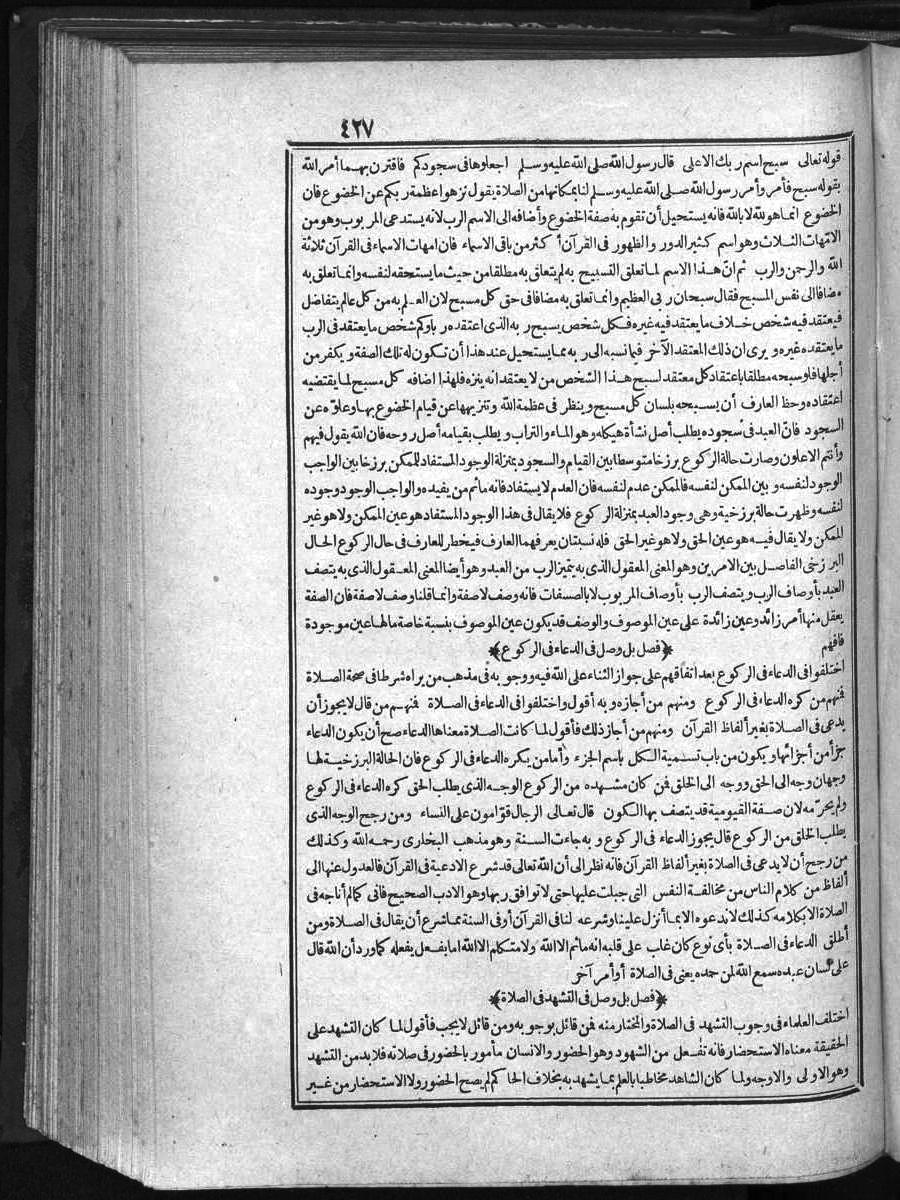 ٤٢٧
قوله تعالى سبح اسم ربك الاعلى قال رسول الله صلى الله عليه وسلم اجعلوها فى سجودكم فاقترن بهما أمر الله
بقوله سبح فأمر وأمر رسول الله صلى الله عليه وسلم لنا بمكانها من الصلاة يقول نزهوا عظمة ربكم عن الخضوع فان
الخضوع انما هو لله لا بالله فانه يستحيل أن تقوم به صفة الخضوع وأضافه الى الاسم الرب لانه يستدعى المربوب وهو من
الامّهات الثلاث وهو اسم كثير الدور والظهور فى القرآن أكثر من باقى الاسماء فان امهات الاسماء فى القرآن ثلاثة
الله والرحمن والرب ثم انّ هذا الاسم لما تعلق التسبيح به لم يتعلق به مطلقا من حيث ما يستحقه لنفسه وانما تعلق به
مضافا الى نفس المسبح فقال سبحان ربى العظيم وانما تعلق به مضافا فى حق كل مسبح لان العلم به من كل عالم يتفاضل
فيعتقد فيه شخص خلاف ما يعتقد فيه غيره فكل شخص يسبح ربه الذى اعتقده ربا وكم شخص ما يعتقد فى الرب
ما يعتقده غيره ويرى ان ذلك المعتقد الآخر فيما نسبه الى ربه مما يستحيل عند هذا أن تكون له تلك الصفة ويكفر من
أجلها فلو سبحه مطلقا باعتقاد كل معتقد لسبح هذا الشخص من لا يعتقد انه ينزه فلهذا اضافه كل مسبح لما يقتضيه
اعتقاده وحظ العارف أن يسبحه بلسان كل مسبح وينظر فى عظمة الله وتنزيهها عن قيام الخضوع بها وعلوّه عن
السجود فانّ العبد فى سجوده يطلب أصل نشأة هيكله وهو الماء والتراب ويطلب بقيامه أصل روحه فان الله يقول فيهم
وأنتم الاعلون وصارت حالة الركوع برزخا متوسطا بين القيام والسجود بمنزلة الوجود المستفاد للممكن برزخا بين الواجب
الوجود لنفسه وبين الممكن لنفسه فالممكن عدم لنفسه فان العدم لا يستفاد فانه ما ثم من يفيده والواجب الوجود وجوده
لنفسه وظهرت حالة برزخية وهى وجود العبد بمنزلة الركوع فلا يقال فى هذا الوجود المستفاد هو عين الممكن ولا هو غير
الممكن ولا يقال فيه هو عين الحق ولا هو غير الحق فله نسبتان يعرفهما العارف فيخطر للعارف فى حال الركوع الحال
البرزخى الفاصل بين الامرين وهو المعنى المعقول الذى به يتميز الرب من العبد وهو أيضا المعنى المعقول الذى به يتصف
العبد بأوصاف الرب ويتصف الرب بأوصاف المربوب لا بالصفات فانه وصف لا صفة وانما قلنا وصف لا صفة فان الصفة
يعقل منها أمر زائد وعين زائدة على عين الموصوف والوصف قد يكون عين الموصوف بنسبة خاصة ما لها عين موجودة
فافهم
﴿فصل بل وصل فى الدعاء فى الركوع﴾
اختلفوا فى الدعاء فى الركوع بعد اتفاقهم على جواز الثناء على الله فيه ووجوبه فى مذهب من يراه شرطا فى صحة الصلاة
فمنهم من كره الدعاء فى الركوع ومنهم من أجازه وبه أقول واختلفوا فى الدعاء فى الصلاة فمنهم من قال لا يجوز أن
يدعى فى الصلاة بغير ألفاظ القرآن ومنهم من أجاز ذلك فأقول لما كانت الصلاة معناها الدعاء صح أن يكون الدعاء
جزأ من أجزائها ويكون من باب تسمية الكل باسم الجزء وأما من يكره الدعاء فى الركوع فان الحالة البرزخية لها
وجهان وجه الى الحق ووجه الى الخلق فمن كان مشهده من الركوع الوجه الذى يطلب الحق كره الدعاء فى الركوع
ولم يحرّمه لان صفة القيومية قد يتصف بها الكون قال تعالى الرجال قوّامون على النساء ومن رجح الوجه الذى
يطلب الخلق من الركوع قال يجوز الدعاء فى الركوع وبه جاءت السنة وهو مذهب البخارى رحمه الله وكذلك
من رجح أن لا يدعى فى الصلاة بغير ألفاظ القرآن فانه نظر الى أن الله تعالى قد شرع الادعية فى القرآن فالعدول عنها الى
ألفاظ من كلام الناس من مخالفة النفس التى جبلت عليها حتى لا توافق ربها وهو الادب الصحيح فانى كما لم أناجه فى
الصلاة الا بكلامه كذلك لا ندعوه الا بما أنزل علينا وشرعه لنا فى القرآن أو فى السنة مما شرع أن يقال فى الصلاة ومن
أطلق الدعاء فى الصلاة بأى نوع كان غلب على قلبه انه ما ثم الا الله ولا متكلم الا الله اما بفعل يفعله كما ورد أن الله قال
على لسان عبده سمع الله لمن حمده يعنى فى الصلاة أو أمر آخر
﴿فصل بل وصل فى التشهد فى الصلاة﴾
اختلف العلماء فى وجوب التشهد فى الصلاة والمختار منه فمن قائل بوجوبه ومن قائل لا يجب فأقول لما كان التشهد على
الحقيقة معناه الاستحضار فانه تفعل من الشهود وهو الحضور والانسان مأمور بالحضور فى صلاته فلا بد من التشهد
وهو الاولى والاوجه ولما كان الشاهد مخاطبا بالعلم بما يشهد به بخلاف الحاكم لم يصح الحضور ولا الاستحضار من غير